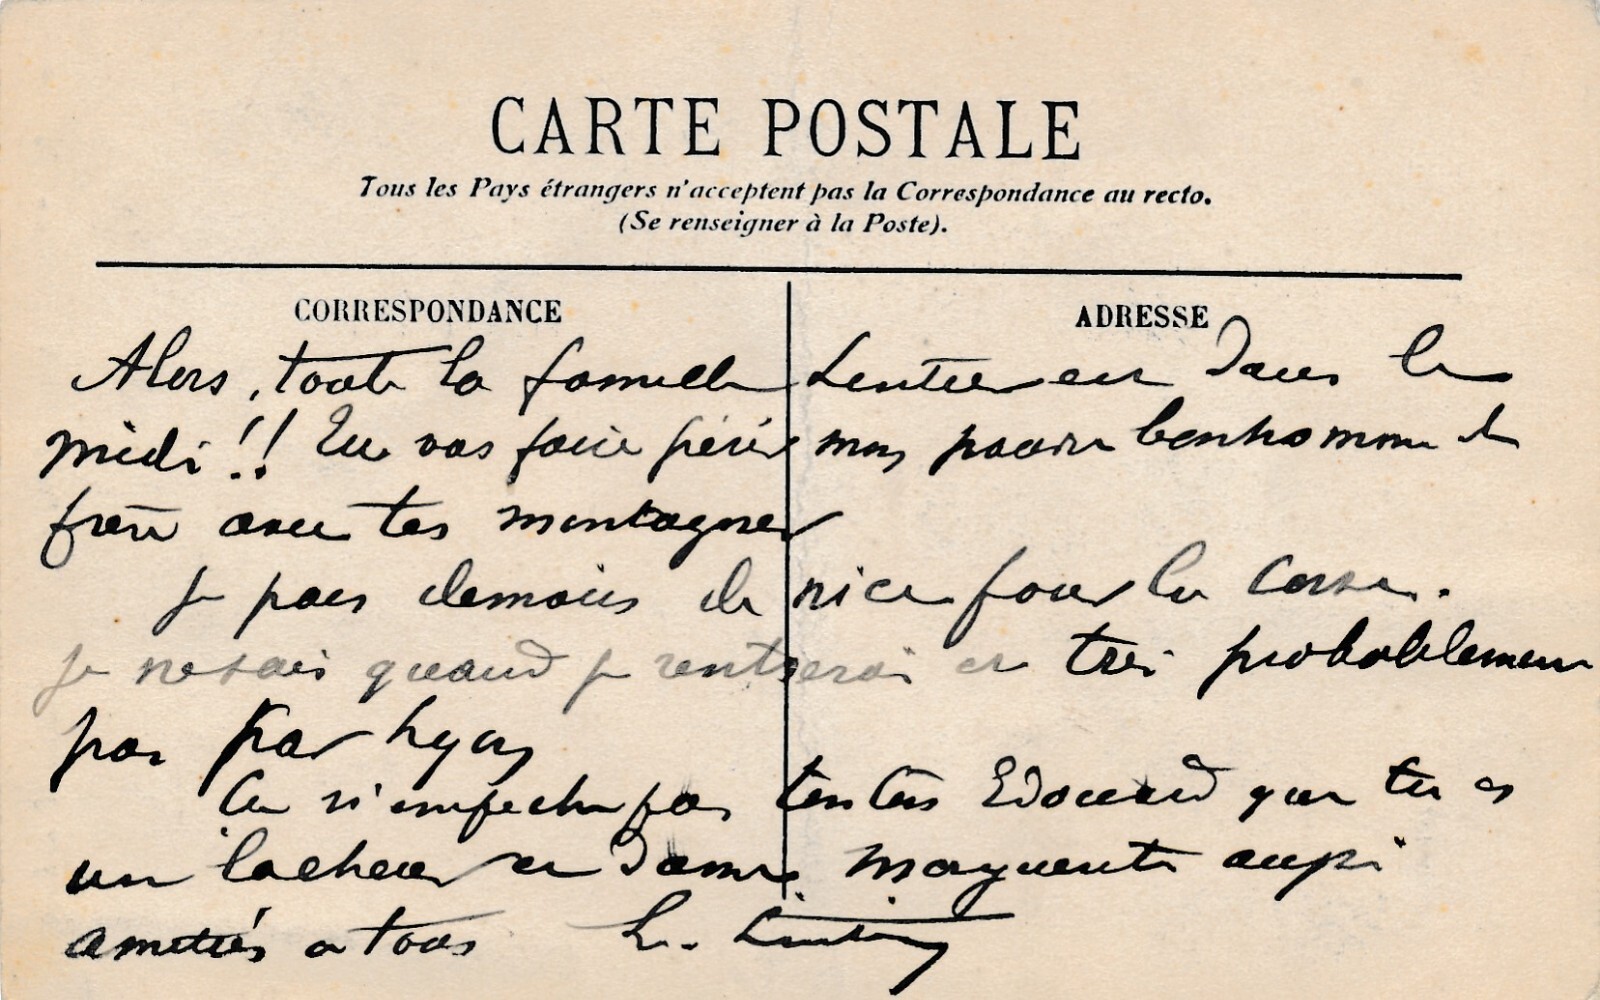 CARTE POSTALE
Tous les Pays étrangers n'acceptent pas la Correspondance au recto.
(Se renseigner à la Poste).
CORRESPONDANCE
ADRESSE
Alors, toute la famille est dans le
midi !! Tu vas faire périr mon pauvre bonhomme de
frère avec tes montagnes
Je pars demain de nice pour la Corse.
je ne sais quand je rentrerai et très probablement
pas par Lyon
Ca n'empeche pas Edouard que tu es
un lacheur et dame Marguerite aussi
amitiés a tous L.